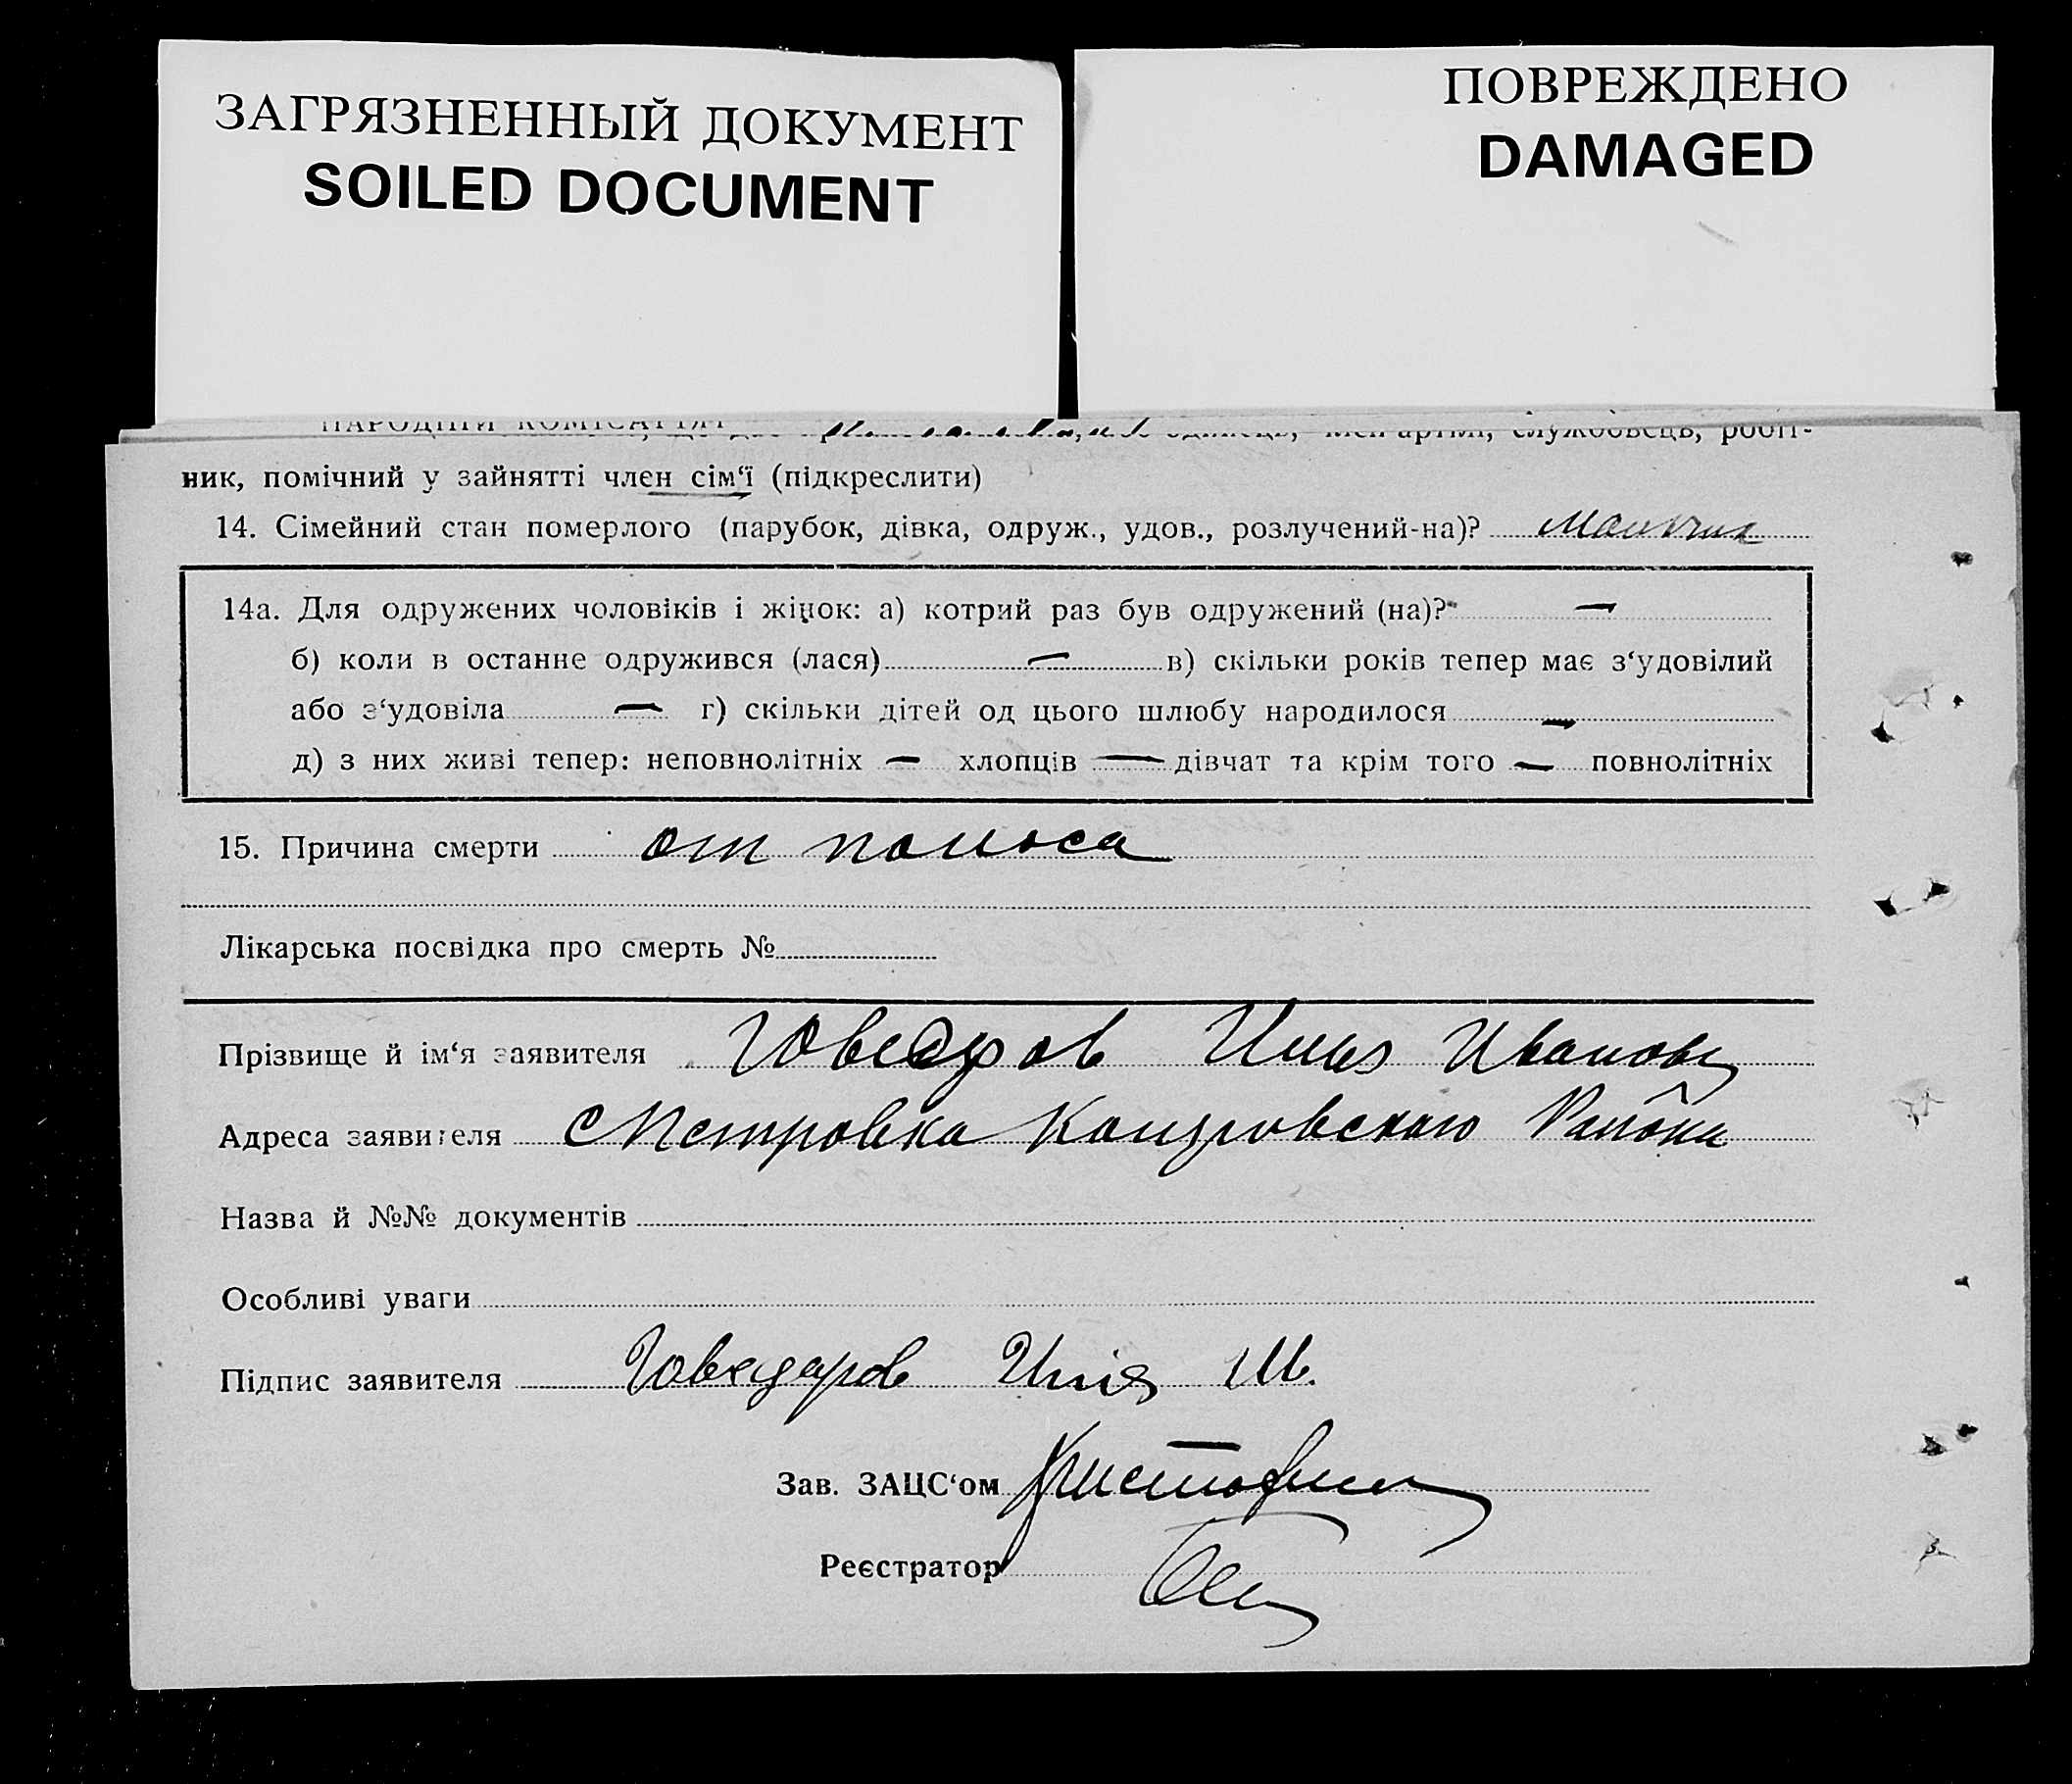 ЗАГРЯЗНЕННЫЙ ДОКУМЕНТ
SOILED DOCUMENT
ПОВРЕЖДЕНО
DAMAGED
НАРОДНІЙ КОМІСАРІЯТ одинець, член артілі, службовець, робіт-
ник, помічний у зайнятті член сім‘ї (підкреслити)
14. Сімейний стан померлого (парубок, дівка, одруж., удов., розлучений-на)? Мальчик
14а. Для одружених чоловіків і жінок: а) котрий раз був одружений (на)? —
б) коли в останнє одружився (лася) — в) скільки років тепер має з‘удовілий
або з‘удовіла — г) скільки дітей од цього шлюбу народилося —
д) з них живі тепер: неповнолітніх — хлопців — дівчат та крім того — повнолітніх
15. Причина смерти от поноса
Лікарська посвідка про смерть №
Прізвище й ім‘я заявителя Говедров Илья Иванов
Адреса заявителя с Петровка Коларовского Района
Назва й №№ документів
Особливі уваги
Підпис заявителя Говедаров Илія Ив.
Зав. ЗАЦС‘ом
Реєстратор